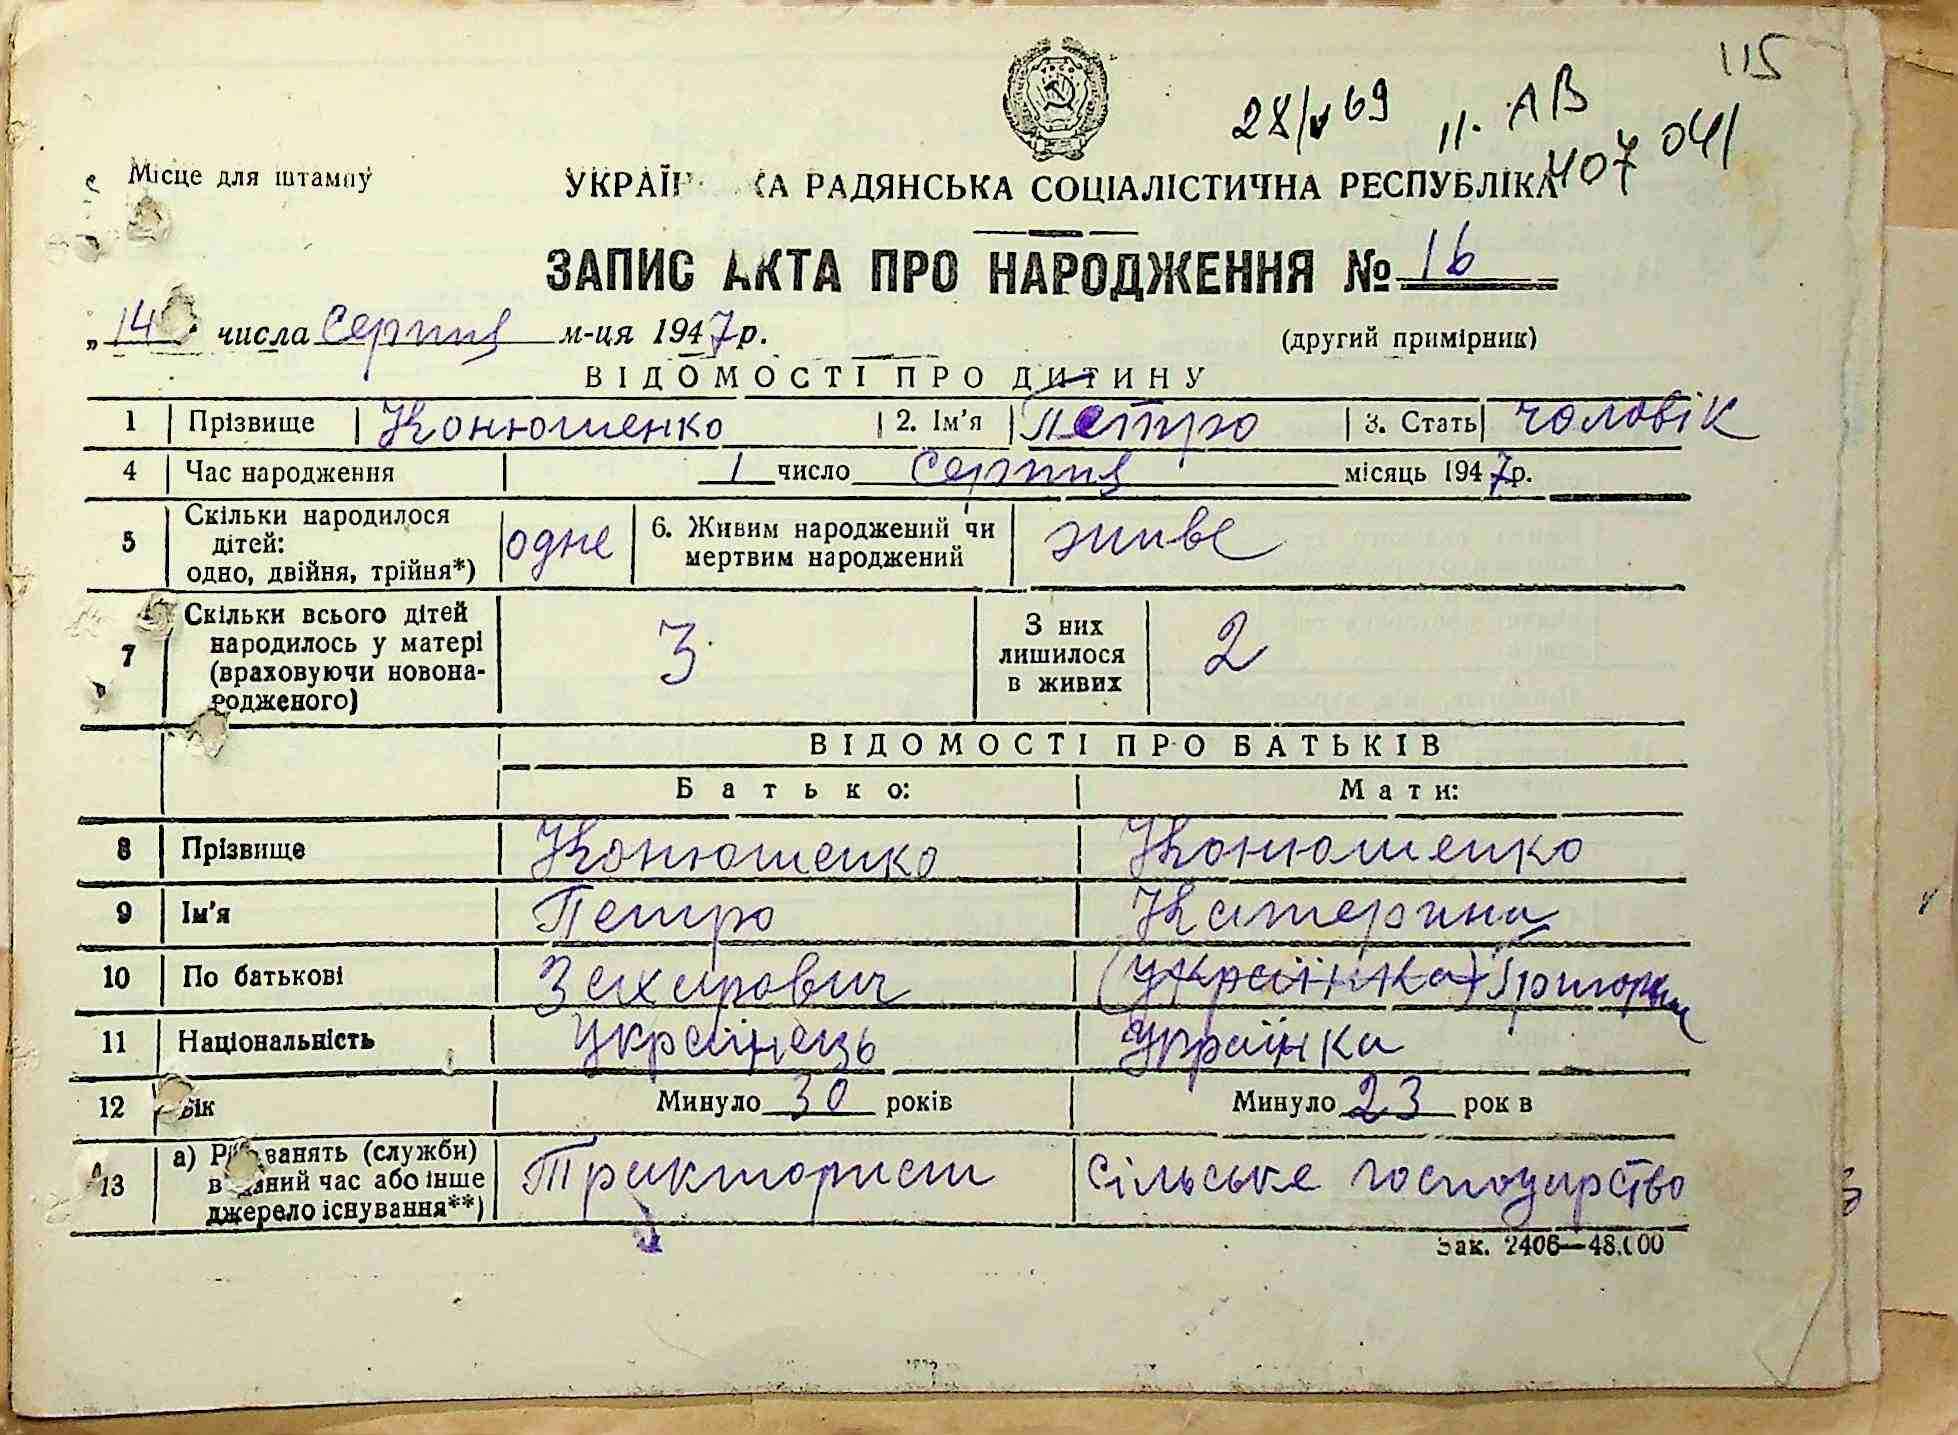 115
28/V 69 п. АВ
407 041
Місце для штампу
УКРАЇН КА РАДЯНСЬКА СОЦІАЛІСТИЧНА РЕСПУБЛІКА
ЗАПИС АКТА ПРО НАРОДЖЕННЯ № 16
„14 числа Серпня м-ця 1947 р.
(другий примірник)
ВІДОМОСТІ ПРО ДИТИНУ
1 Прізвище Конюшенко 2. Ім'я Петро 3. Стать чоловік
4 Час народження 1 число Серпня місяць 1947 р.
5 Скільки народилося дітей: одно, двійня, трійня*) одне 6. Живим народжений чи мертвим народжений живе
7 Скільки всього дітей народилось у матері (враховуючи новона-родженого) 3 З них лишилося в живих 2
ВІДОМОСТІ ПРО БАТЬКІВ
Батько: Мати:
8 Прізвище Конюшенко Конюшенко
9 Ім'я Петро Катерина
10 По батькові Захарович (Українка)
11 Національність Українець Українка
12 Вік Минуло 30 років Минуло 23 рок в
13 а) Рід занять (служби) в даний час або інше джерело існування**) Тракторист Сільське господарство
Зак. 2406—48.000